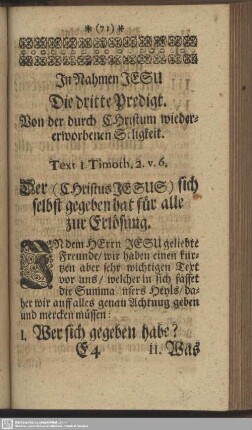 (71)
In Nahmen JESU
Die dritte Predigt.
Von der durch CHristum wieder-
erworbenen Seligkeit.
Text 1 Timoth. 2. v. 6.
Der (CHristus JESUS) sich
selbst gegeben hat für alle
zur Erlösung.
IN dem HErrn JESU geliebte
Freunde/ wir haben einen kur-
tzen aber sehr wichtigen Text
vor uns/ welcher in sich fasset
die Summa unsers Heyls/ da-
her wir auff alles genau Achtung geben
und mercken müssen:
I. Wer sich gegeben habe?
E 4 II. Was